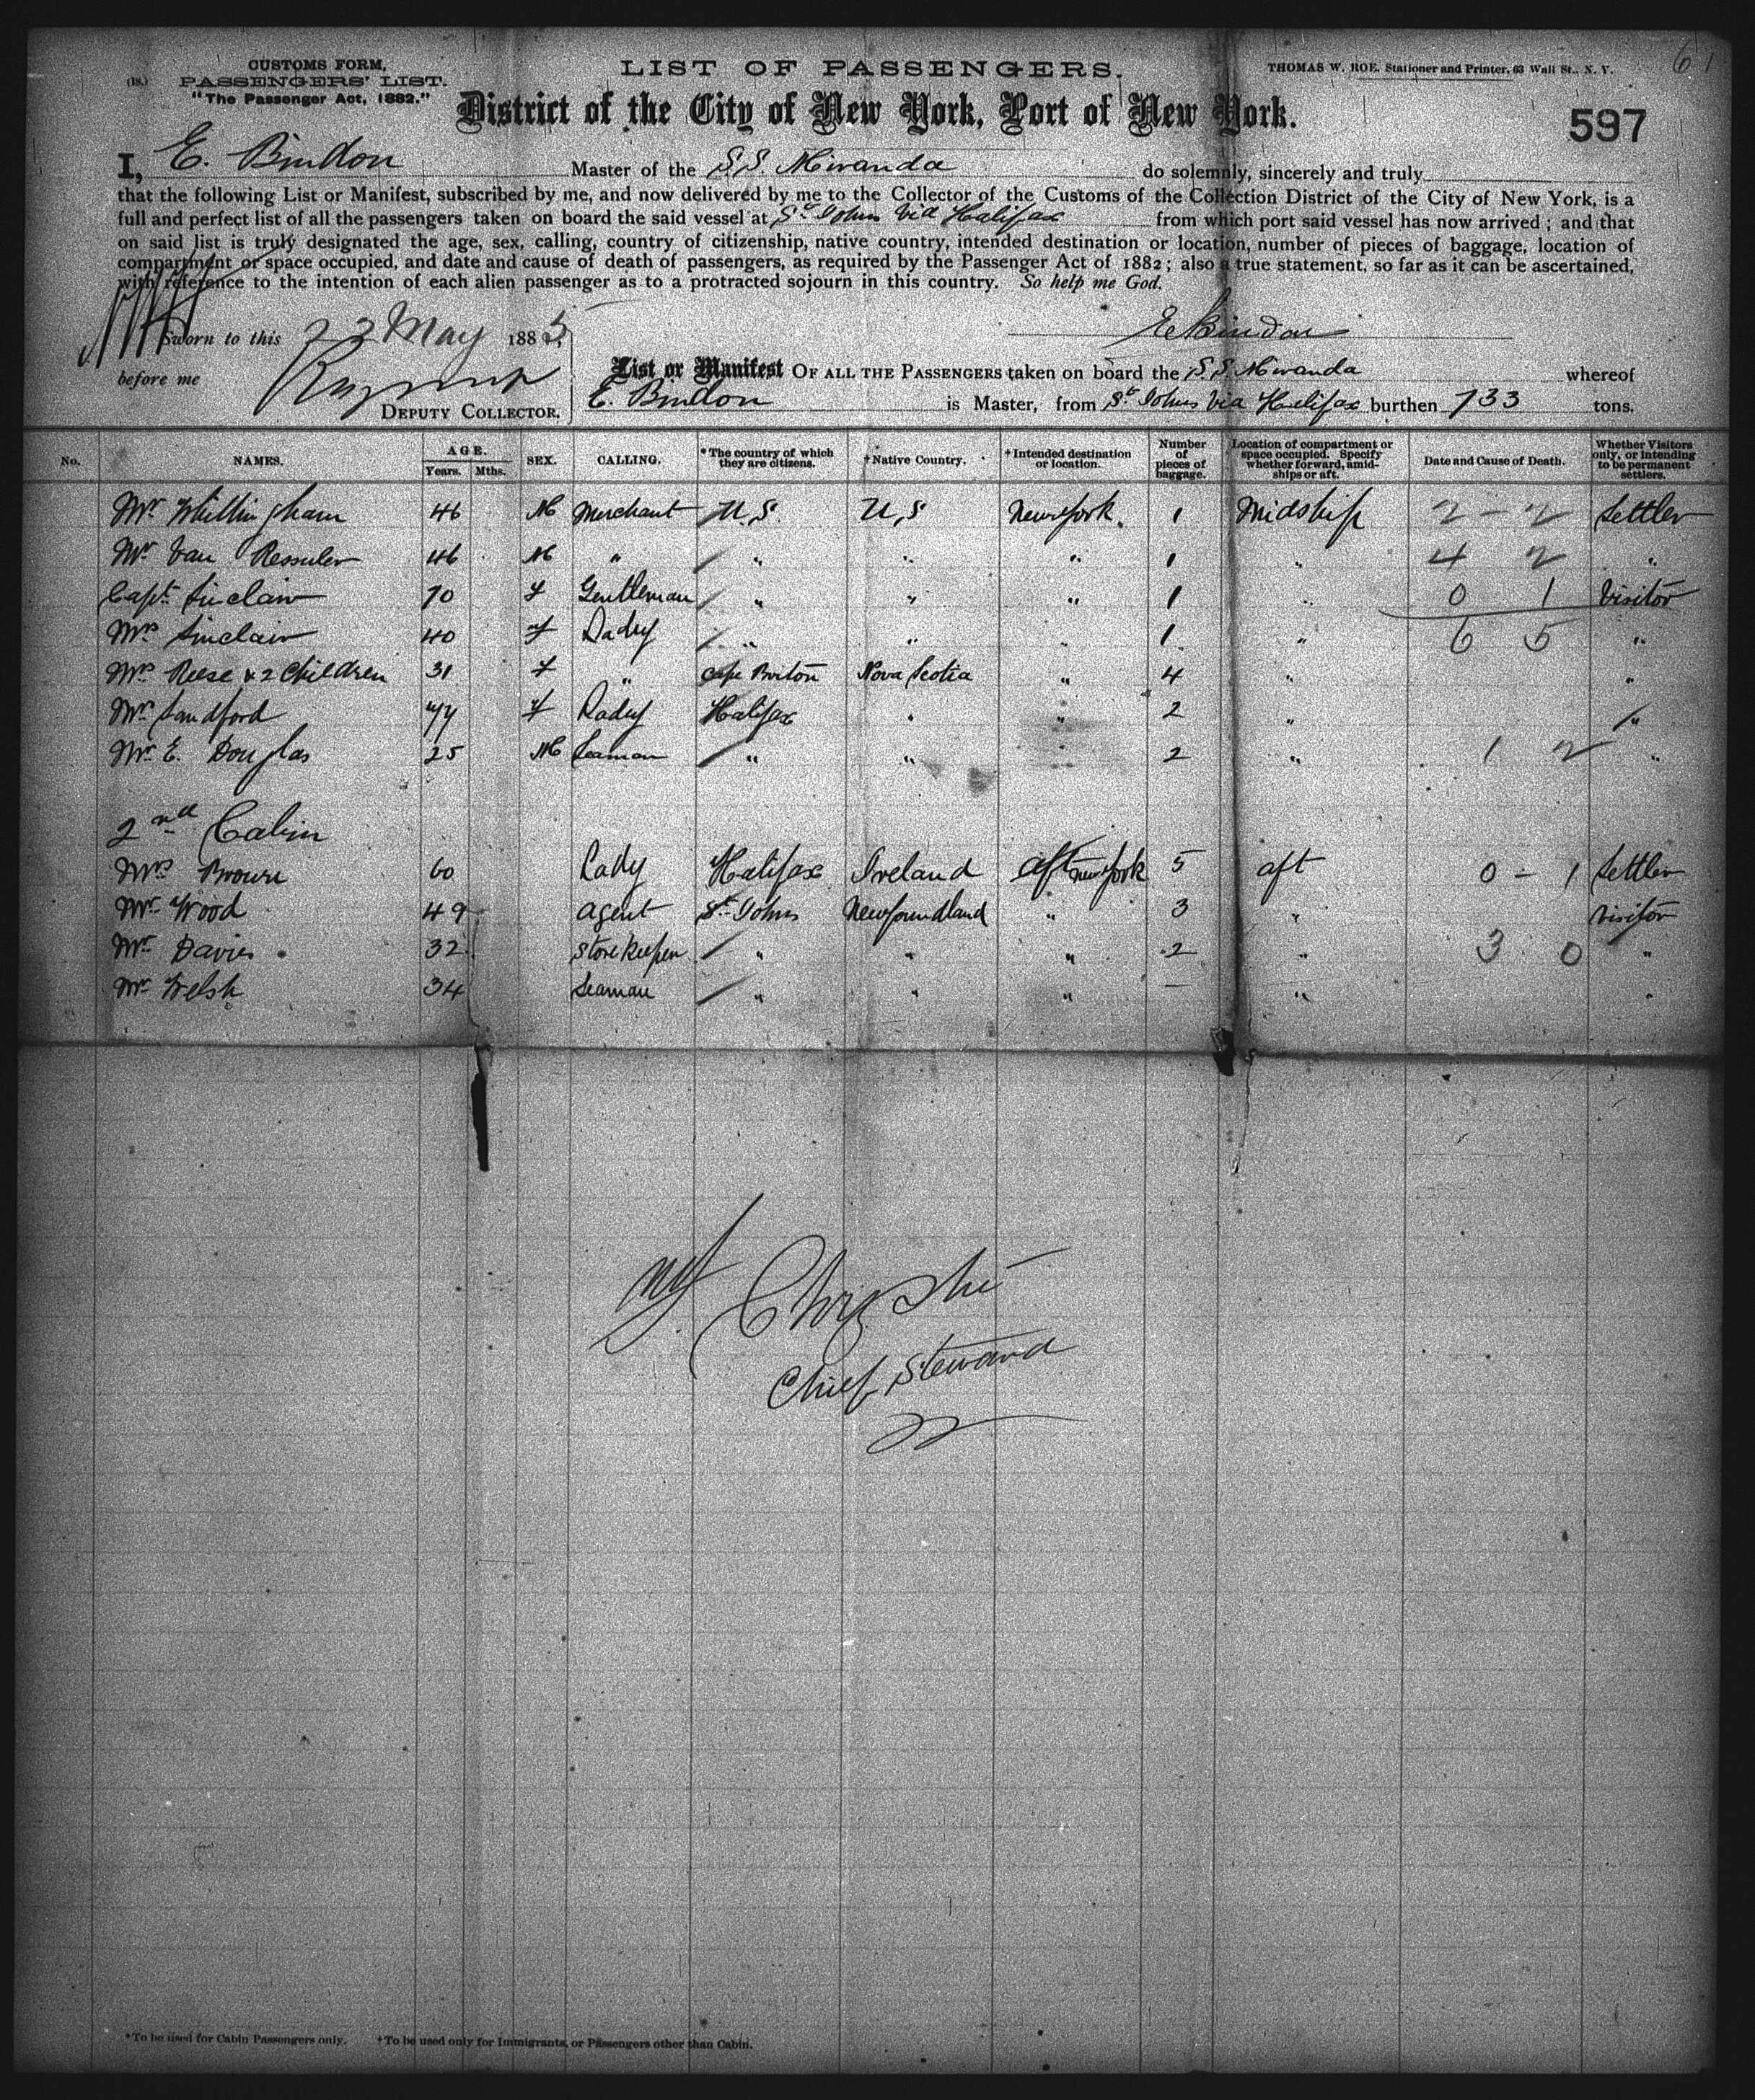 61
CUSTOMS FORM,
(18.) PASSENGERS' LIST.
"The Passenger Act, 1882."
LIST OF PASSENGERS.
THOMAS W. ROE, Stationer and Printer, 63 Wall St., N. Y.
District of the City of New York, Port of New York.
597
I, E. Bindon Master of the S.S. Miranda do solemnly, sincerely and truly
that the following List or Manifest, subscribed by me, and now delivered by me to the Collector of the Customs of the Collection District of the City of New York, is a
full and perfect list of all the passengers taken on board the said vessel at St Johns Via Halifax from which port said vessel has now arrived; and that
on said list is truly designated the age, sex, calling, country of citizenship, native country, intended destination or location, number of pieces of baggage, location of
compartment or space occupied, and date and cause of death of passengers, as required by the Passenger Act of 1882; also a true statement, so far as it can be ascertained,
with reference to the intention of each alien passenger as to a protracted sojourn in this country. So help me God.
E Bindon
Sworn to this 23 May 1885,
before me
DEPUTY COLLECTOR.
List or Manifest OF ALL THE PASSENGERS taken on board the S.S. Miranda whereof
E. Bindon is Master, from St Johns Via Halifax burthen 733 tons.
No. NAMES. AGE. Years. Mths. SEX. CALLING. *The country of which they are citizens. †Native Country. †Intended destination or location. Number of pieces of baggage. Location of compartment or space occupied. Specify whether forward, amidships or aft. Date and Cause of Death. Whether Visitors only, or intending to be permanent settlers.
Mr Whittingham 46 M Merchant U.S. U,S New York. 1 Midship 2 - 2 Settler
Mr Van 46 M " " " " 1 " 4 2 "
Capt. Sinclair 70 F Gentleman " " " 1 " 0 1 Visitor
Mrs Sinclair 40 F Lady " " " 1 " 6 5 "
Mrs Reese & 2 Children 31 F " Cape Briton Nova Scotia " 4 " "
Mrs Sandford 44 F Lady Halifax " " 2 " "
Mr E. Douglas 25 M Seaman " " " 2 " 1 2 "
2nd Cabin
Mrs Browne 60 Lady Halifax Ireland aft New York 5 aft 0 - 1 Settler
Mr Wood 49 agent St Johns Newfoundland " 3 " Visitor
Mr Davies 32 Storekeeper " " " 2 " 3 0 "
Mr Welsh 34 Seaman " " " — " "
Christie
Chief Steward
*To be used for Cabin Passengers only. †To be used only for Immigrants, or Passengers other than Cabin.